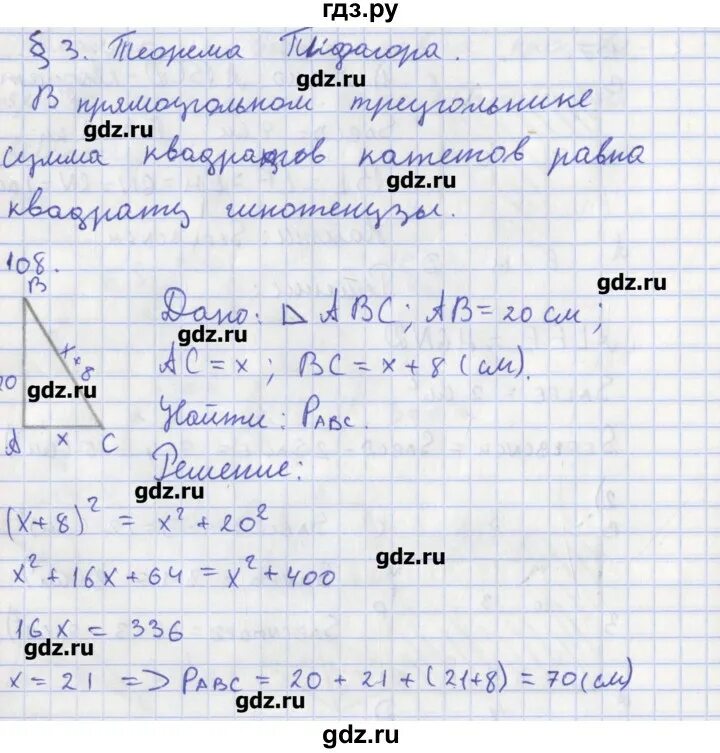 гдз.ру
§ 3. Теорема Пифагора.
gdz.ru
В прямоугольном треугольнике
gdz.ru
сумма квадратов катетов равна
gdz.ru
квадрату гипотенузы.
108.
B
gdz.ru
Дано: ⊿ ABC; AB = 20 см;
gdz.ru
x+8
AC = x; BC = x + 8 (см).
20
gdz.ru
Найти: P_ABC.
A x C
Решение:
gdz.ru
(x+8)² = x² + 20²
gdz.ru
x² + 16x + 64 = x² + 400
16x = 336
gdz.ru
x = 21 => P_ABC = 20 + 21 + (21+8) = 70 (см)
gdz.ru
gdz.ru